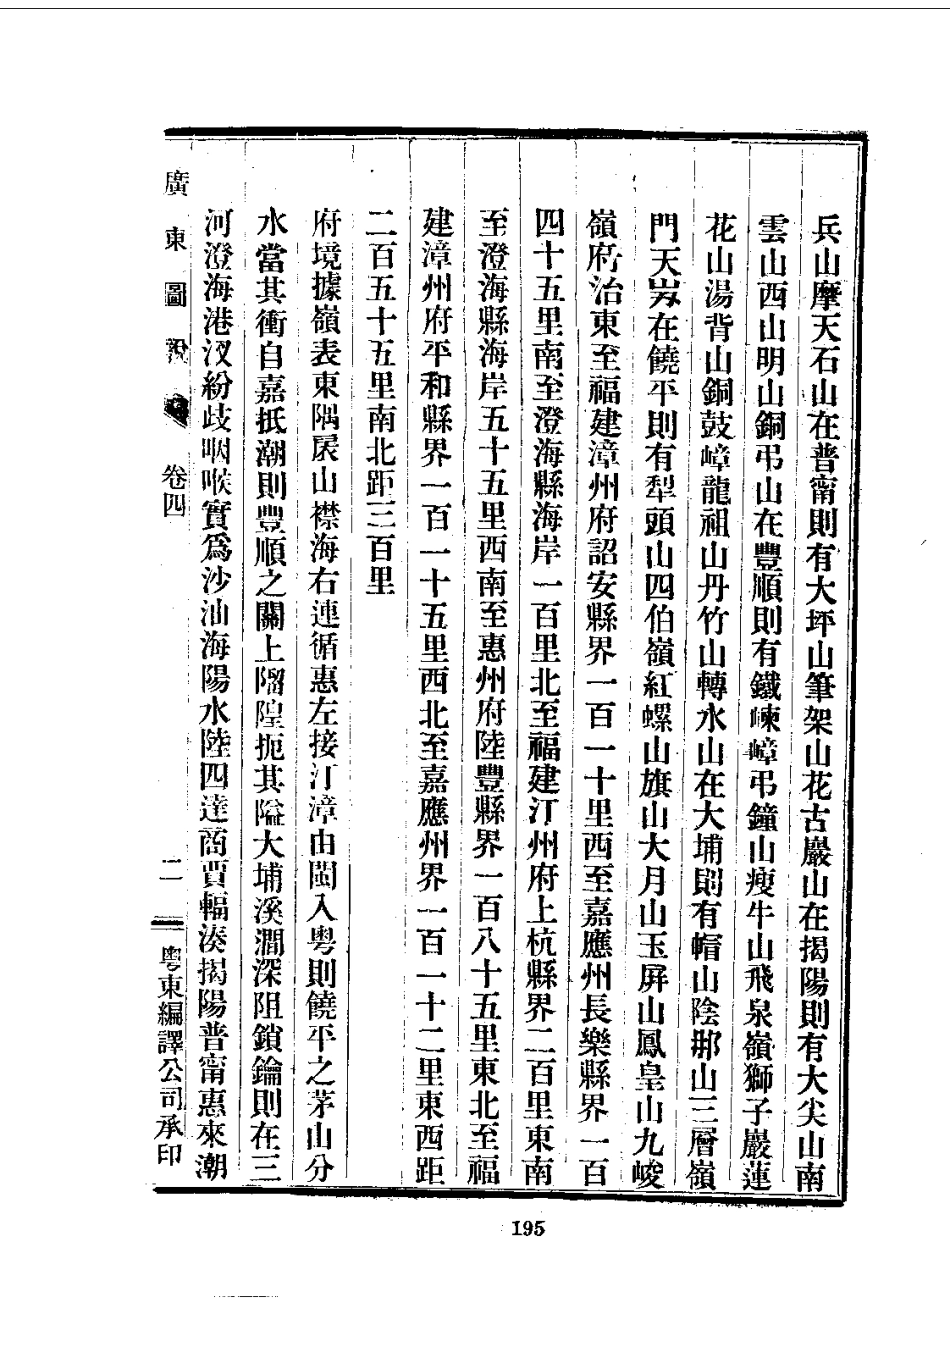 兵山摩天石山在普甯則有大坪山筆架山花古巖山在揭陽則有大尖山南
雲山西山明山銅弔山在豐順則有鐵崠嶂弔鐘山瘦牛山飛泉嶺獅子巖蓮
花山湯背山銅鼓嶂龍祖山丹竹山轉水山在大埔則有帽山陰那山三層嶺
門天岃在饒平則有犁頭山四伯嶺紅螺山旗山大月山玉屏山鳳皇山九峻
嶺府治東至福建漳州府詔安縣界一百一十里西至嘉應州長樂縣界一百
四十五里南至澄海縣海岸一百里北至福建汀州府上杭縣界二百里東南
至澄海縣海岸五十五里西南至惠州府陸豐縣界一百八十五里東北至福
建漳州府平和縣界一百一十五里西北至嘉應州界一百一十二里東西距
二百五十五里南北距三百里
府境據嶺表東隅扆山襟海右連循惠左接汀漳由閩入粵則饒平之茅山分
水當其衝自嘉抵潮則豐順之關上𨻧隍扼其隘大埔溪澗深阻鎖鑰則在三
河澄海港汊紛歧咽喉實爲沙汕海陽水陸四達商賈輻湊揭陽普甯惠來潮
廣東圖說 卷四 二 粵東編譯公司承印
195